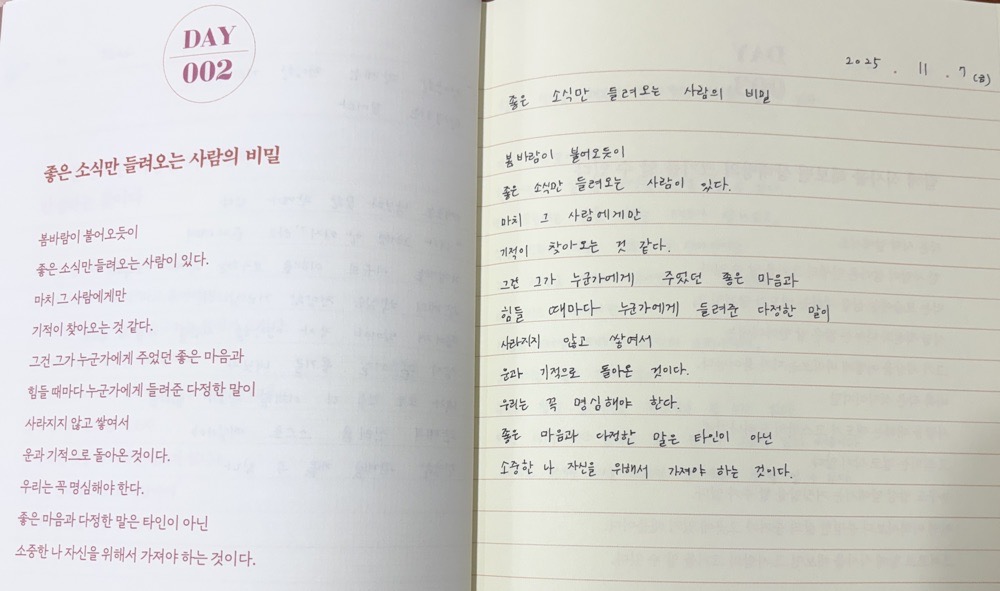 DAY
002
좋은 소식만 들려오는 사람의 비밀
봄바람이 불어오듯이
좋은 소식만 들려오는 사람이 있다.
마치 그 사람에게만
기적이 찾아오는 것 같다.
그건 그가 누군가에게 주었던 좋은 마음과
힘들 때마다 누군가에게 들려준 다정한 말이
사라지지 않고 쌓여서
운과 기적으로 돌아온 것이다.
우리는 꼭 명심해야 한다.
좋은 마음과 다정한 말은 타인이 아닌
소중한 나 자신을 위해서 가져야 하는 것이다.
2025. 11. 7 (금)
좋은 소식만 들려오는 사람의 비밀
봄바람이 불어오듯이
좋은 소식만 들려오는 사람이 있다.
마치 그 사람에게만
기적이 찾아오는 것 같다.
그건 그가 누군가에게 주었던 좋은 마음과
힘들 때마다 누군가에게 들려준 다정한 말이
사라지지 않고 쌓여서
운과 기적으로 돌아온 것이다.
우리는 꼭 명심해야 한다.
좋은 마음과 다정한 말은 타인이 아닌
소중한 나 자신을 위해서 가져야 하는 것이다.